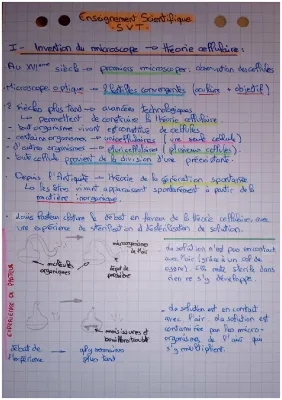 Enseignement Scientifique
- SVT -
I - Invention du microscope → théorie cellulaire :
Au XVIIème siècle → premiers microscopes: observation de cellules
Microscope optique → 2 lentilles convergentes (oculaire + objectif)
2 siècles plus tard → avancées technologiques
↳ permettent de construire la théorie cellulaire
- tout organisme vivant est constitué de cellules
- certains organismes → unicellulaires (une seule cellule)
- d'autres organismes → pluricellulaires (plusieurs cellules).
- toute cellule provient de la division d'une précédente.
Depuis l'Antiquité → théorie de la génération spontanée
↳ les êtres vivants apparaissent spontanément à partir de la
matière inorganique.
Louis Pasteur clôture le débat en faveur de la théorie cellulaire avec
une expérience de stérilisation de solution.
EXPÉRIENCE DE PASTEUR
microorganismes
de l'air
molécules
organiques
dépôt de
poussière
la solution n'est pas en contact
avec l'air (grâce à un col de
cygne). Elle reste stérile, rien
ne s'y développe.
mois
la solution est en contact
avec l'air. la solution est
contaminée par les micro-
organismes de l'air qui
s'y multiplient.
début de
l'expérience
→
qlq semaines
plus tard